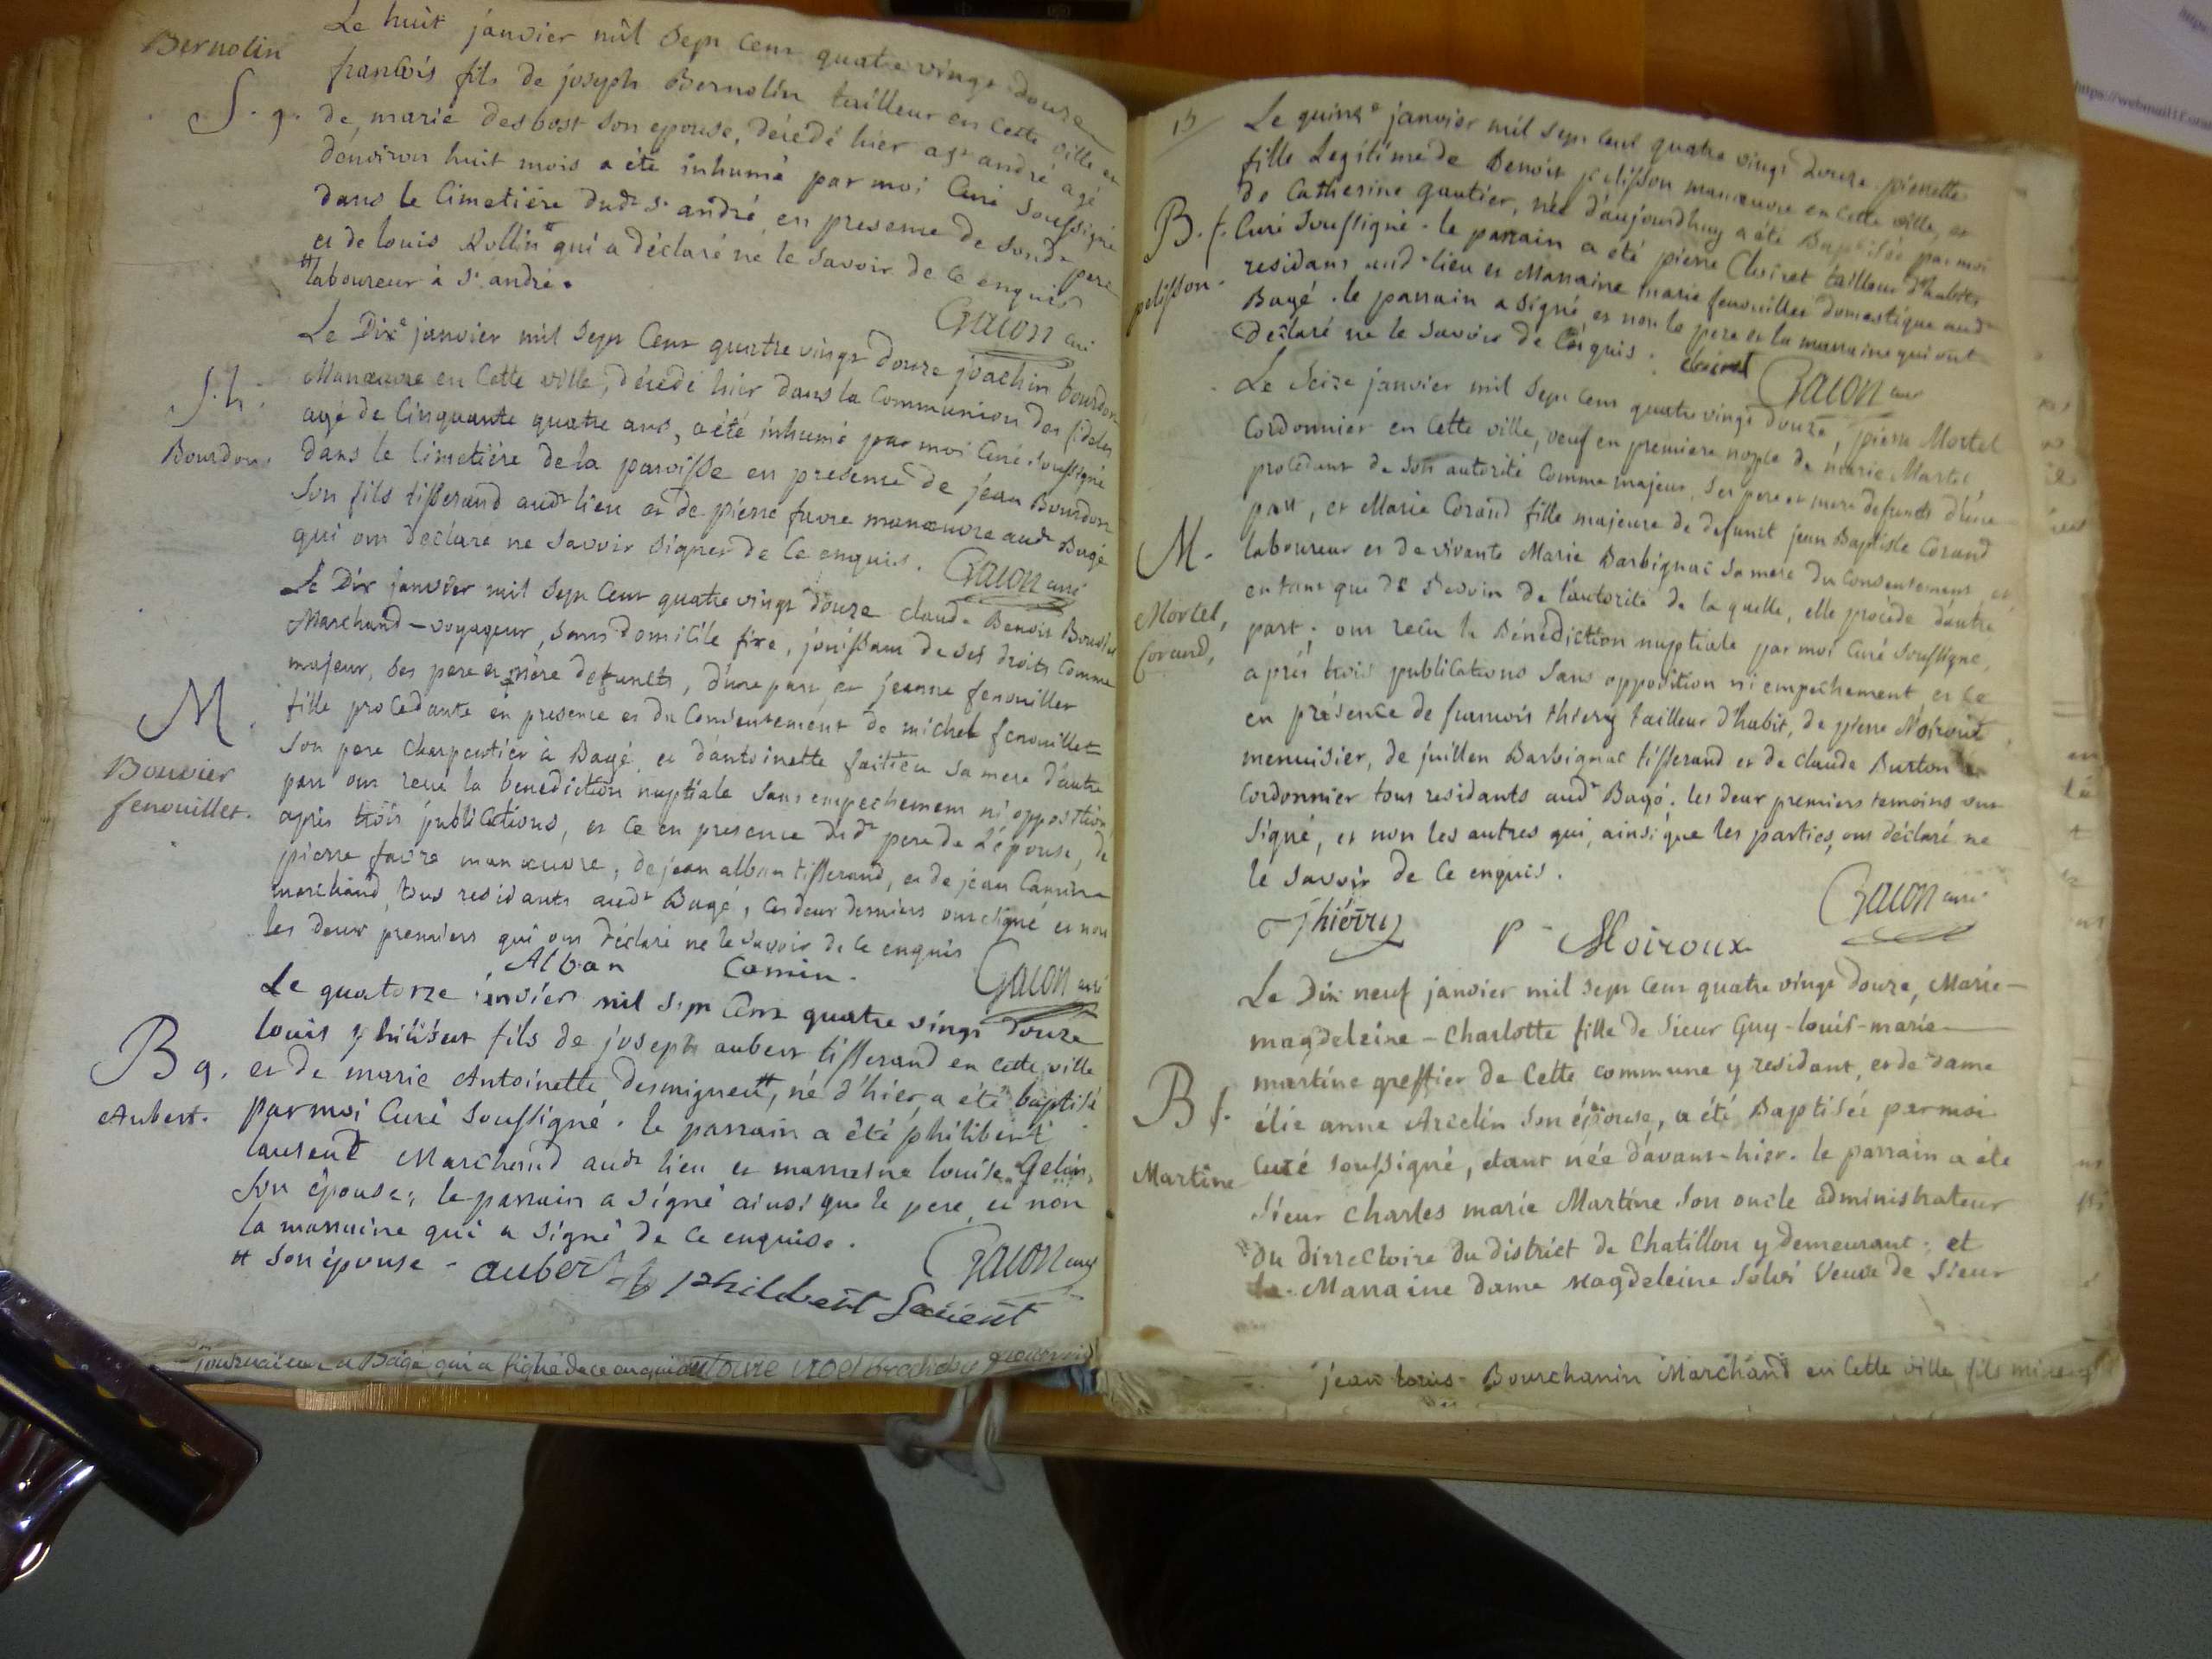 Bernolin
S. g.
Le huit janvier mil sept cent quatre vingt douze
francois fils de joseph Bernolin tailleur en cette ville et
de marie desbost son epouse, décédé hier a st andré agé
d'environ huit mois a été inhumé par moi Curé soussigné
dans le Cimetière dudt st andré en presence de sondt pere
et de louis Rollin # qui a déclaré ne le savoir de ce enquis
# laboureur à st andré.
Galon curé
S. h.
Bourdon
Le Dixe janvier mil sept Cent quatre vingt douze joachin bourdon
Manœuvre en Cette ville, décédé hier dans la Communion des fideles
agé de Cinquante quatre ans, a été inhumé par moi Curé soussigné
dans le Cimetière de la paroisse en presence de jean Bourdon
son fils tisserand audt lieu et de pierre favre manœuvre audt Bagé
qui ont déclaré ne savoir signer de ce enquis. Galon curé
M.
Bouvier
fenouillet.
Le Dix janvier mil sept Cent quatre vingt douze claude Benoit Bouvier
Marchand-voyageur, sans domicile fixe, jouissant de ses droits Comme
majeur, ses pere et mère defuncts, d'une part et jeanne fenouillet
fille procedante en presence et du Consentement de michel fenouillet
son pere Charpentier à Bagé, et d'antoinette sa mere d'autre
part ont recu la benediction nuptiale sans empechement ni opposition
après trois publications, et ce en presence dudt pere de l'épouse, de
pierre favre manœuvre, de jean alban tisserand, et de jean Camin
marchand, tous residants audt Bagé, les deux derniers ont signé et non
les deux premiers qui ont déclaré ne le savoir de ce enquis
Alban Comin. Galon curé
B g.
Aubert.
Le quatorze janvier mil sept Cent quatre vingt douze
louis philibert fils de joseph aubert tisserand en cette ville
et de marie Antoinette desmigneux #, né d'hier, a été baptisé
par moi Curé soussigné. le parrain a été philibert
laurent Marchand audt lieu et marraine louise Gelin
son épouse; le parrain a signé ainsi que le pere et non
la marraine qui a signé de ce enquise.
# son épouse - Galon curé
aubert philibert Laurent
15
B. f.
pelisson.
Le quinze janvier mil sept cent quatre vingt douze pierrette
fille Legitime de Benoit pelisson manœuvre en cette ville, et
de Catherine gautier, née d'aujourdhuy a été Baptisée par moi
Curé soussigné. le parrain a été pierre Cloiret tailleur d'habits
residant audt lieu et Marraine marie fenouillet domestique audt
Bagé. le parrain a signé et non le pere et la marraine qui ont
déclaré ne le savoir de Ce enquis. Galon curé
M.
Mortel,
Corand,
Le Seize janvier mil sept Cent quatre vingt douze, pierre Mortel
Cordonnier en Cette ville, veuf en premiere nopce de marie Martel
procedant de son autorité Comme majeur, ses pere et mere defuncts d'une
part, et Marie Corand fille majeure de defunct jean Baptiste Corand
laboureur et de vivante Marie Barbignac sa mere du Consentement et
en tant que de besoin de l'autorité de la quelle, elle procède d'autre
part; ont recu la Bénédiction nuptiale par moi Curé soussigné,
après trois publications sans opposition ni empechement et ce
en présence de francois thiery tailleur d'habit, de pierre Noiroux
menuisier, de juillen Barbignac tisserand et de claude Burton
Cordonnier tous residants audt Bagé. les deux premiers temoins ont
signé, et non les autres qui, ainsi que les parties, ont déclaré ne
le savoir de ce enquis.
Thiérry P - Moiroux Galon curé
B f.
Martine
Le Dix neuf janvier mil sept Cent quatre vingt douze, Marie-
magdeleine-Charlotte fille de sieur Guy-louis-marie
martine greffier de Cette commune y residant, et de dame
élie anne Arcelin son épouse, a été Baptisée par moi
Curé soussigné, etant née d'avant-hier. le parrain a été
sieur Charles marie Martine son oncle administrateur
du dirrectoire du district de Chatillon y demeurant; et
la Marraine dame magdeleine veuve de sieur
jean louis Bourchanin Marchand en Cette ville fils